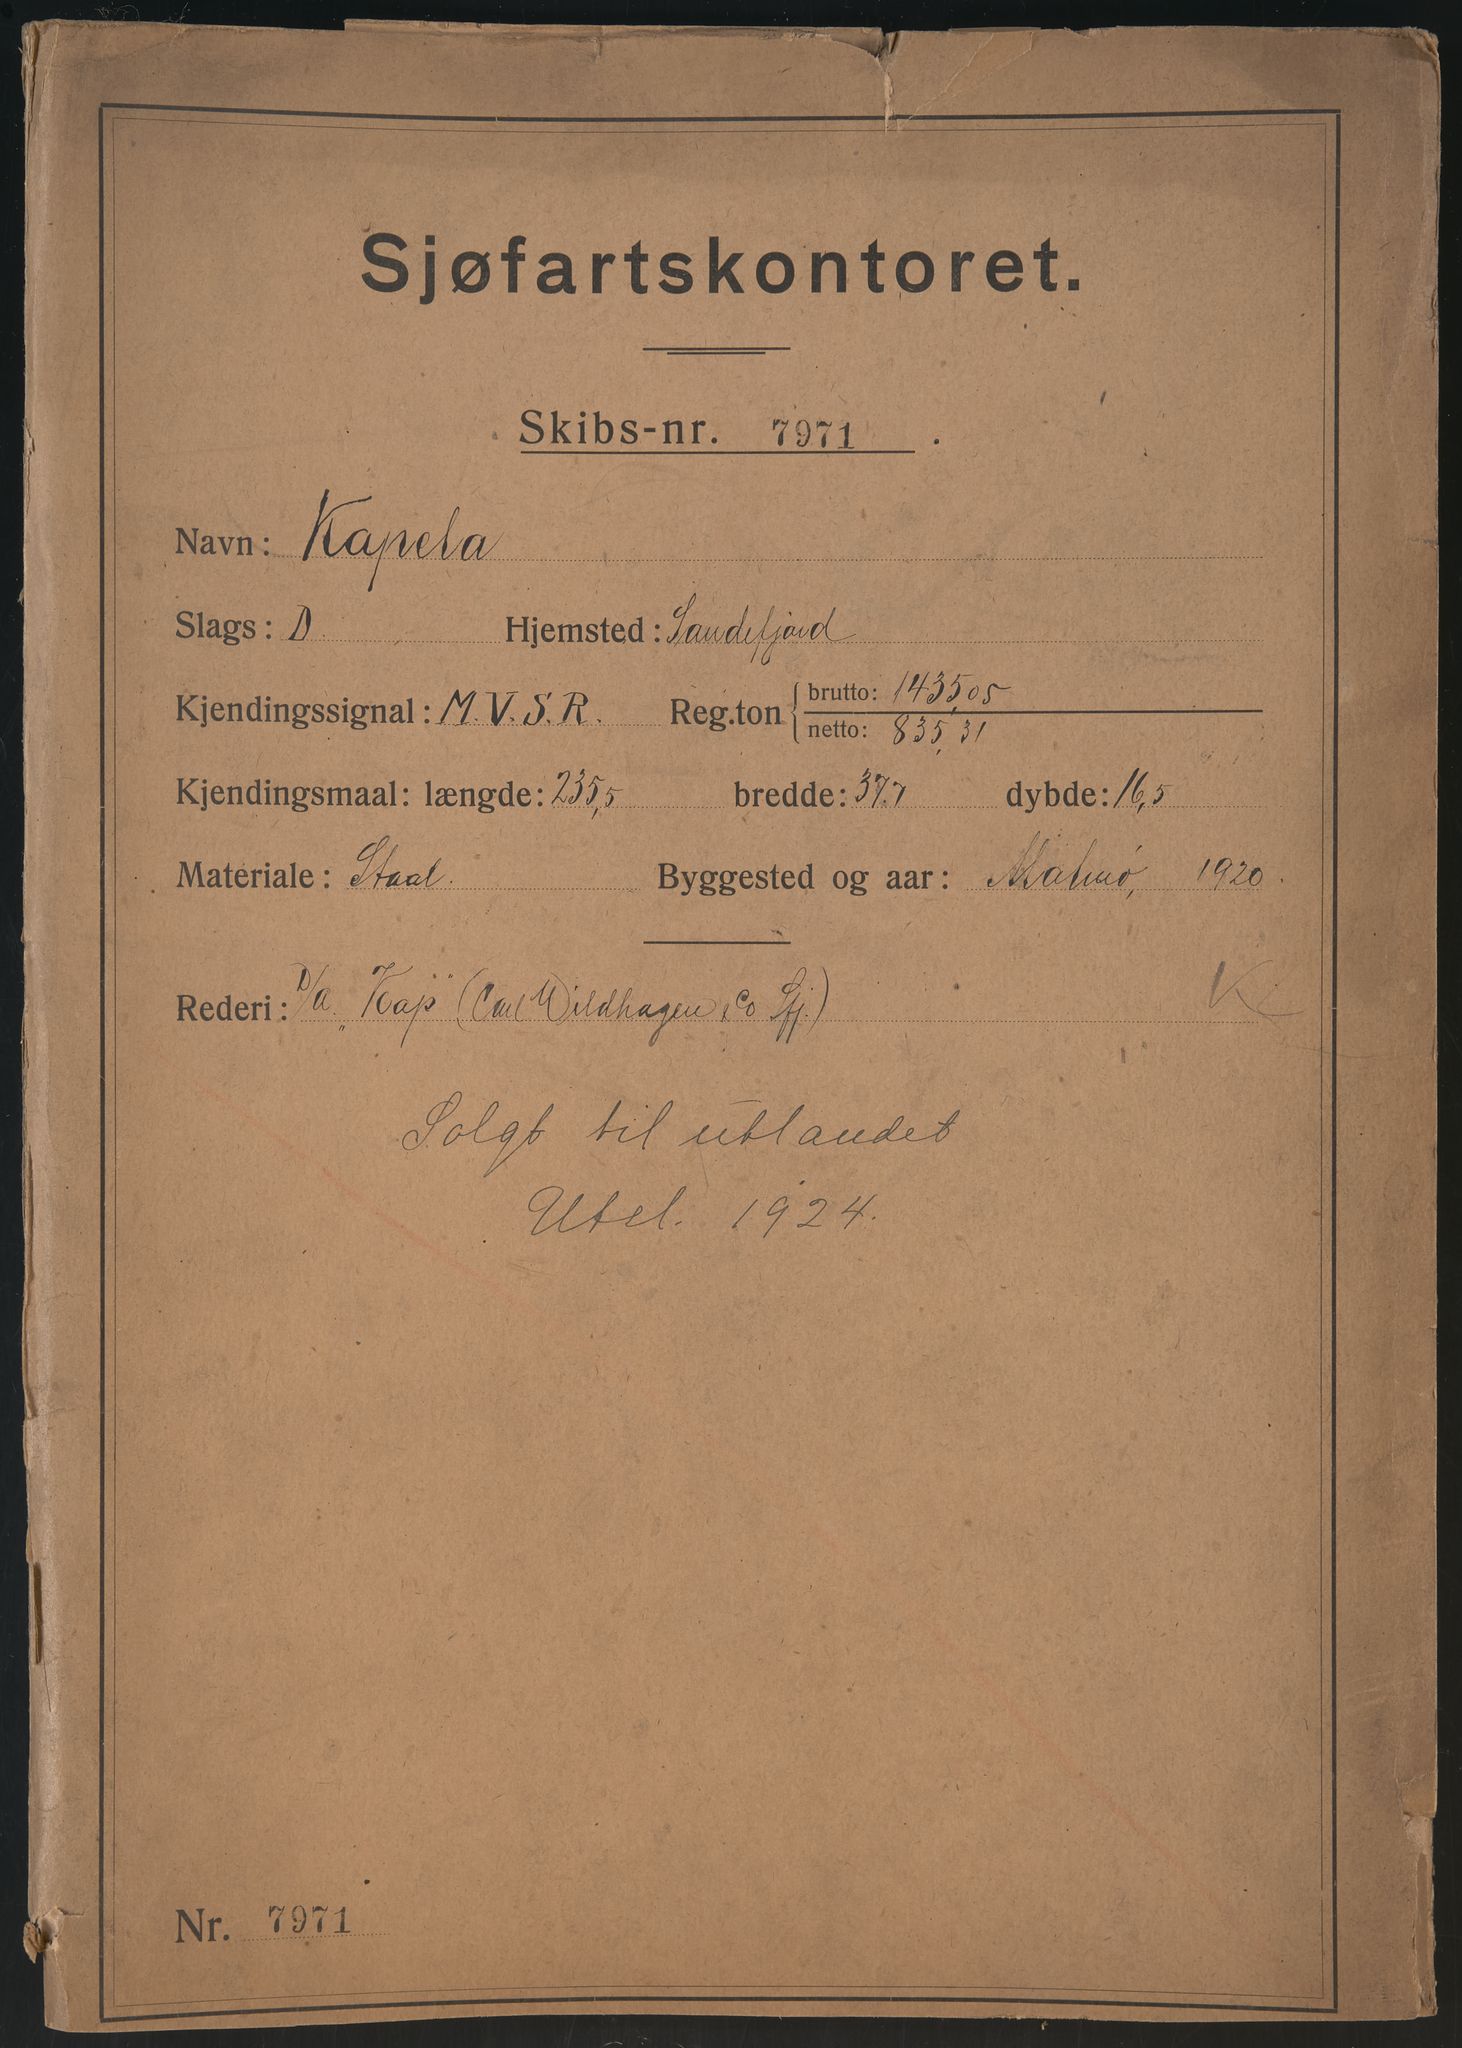 Sjøfartskontoret.
Skibs-nr. 7971.
Navn: Kapela
Slags: D. Hjemsted: Sandefjord
Kjendingssignal: M.V.S.R. Reg.ton brutto: 1435,05
netto: 835,31
Kjendingsmaal: længde: 235,5 bredde: 37.7 dybde: 16,5
Materiale: Staal. Byggested og aar: Malmø, 1920.
Rederi: D/a. „Kap" (Carl Wildhagen & Co Sfj.) K
Solgt til utlandet
Utel. 1924.
Nr. 7971